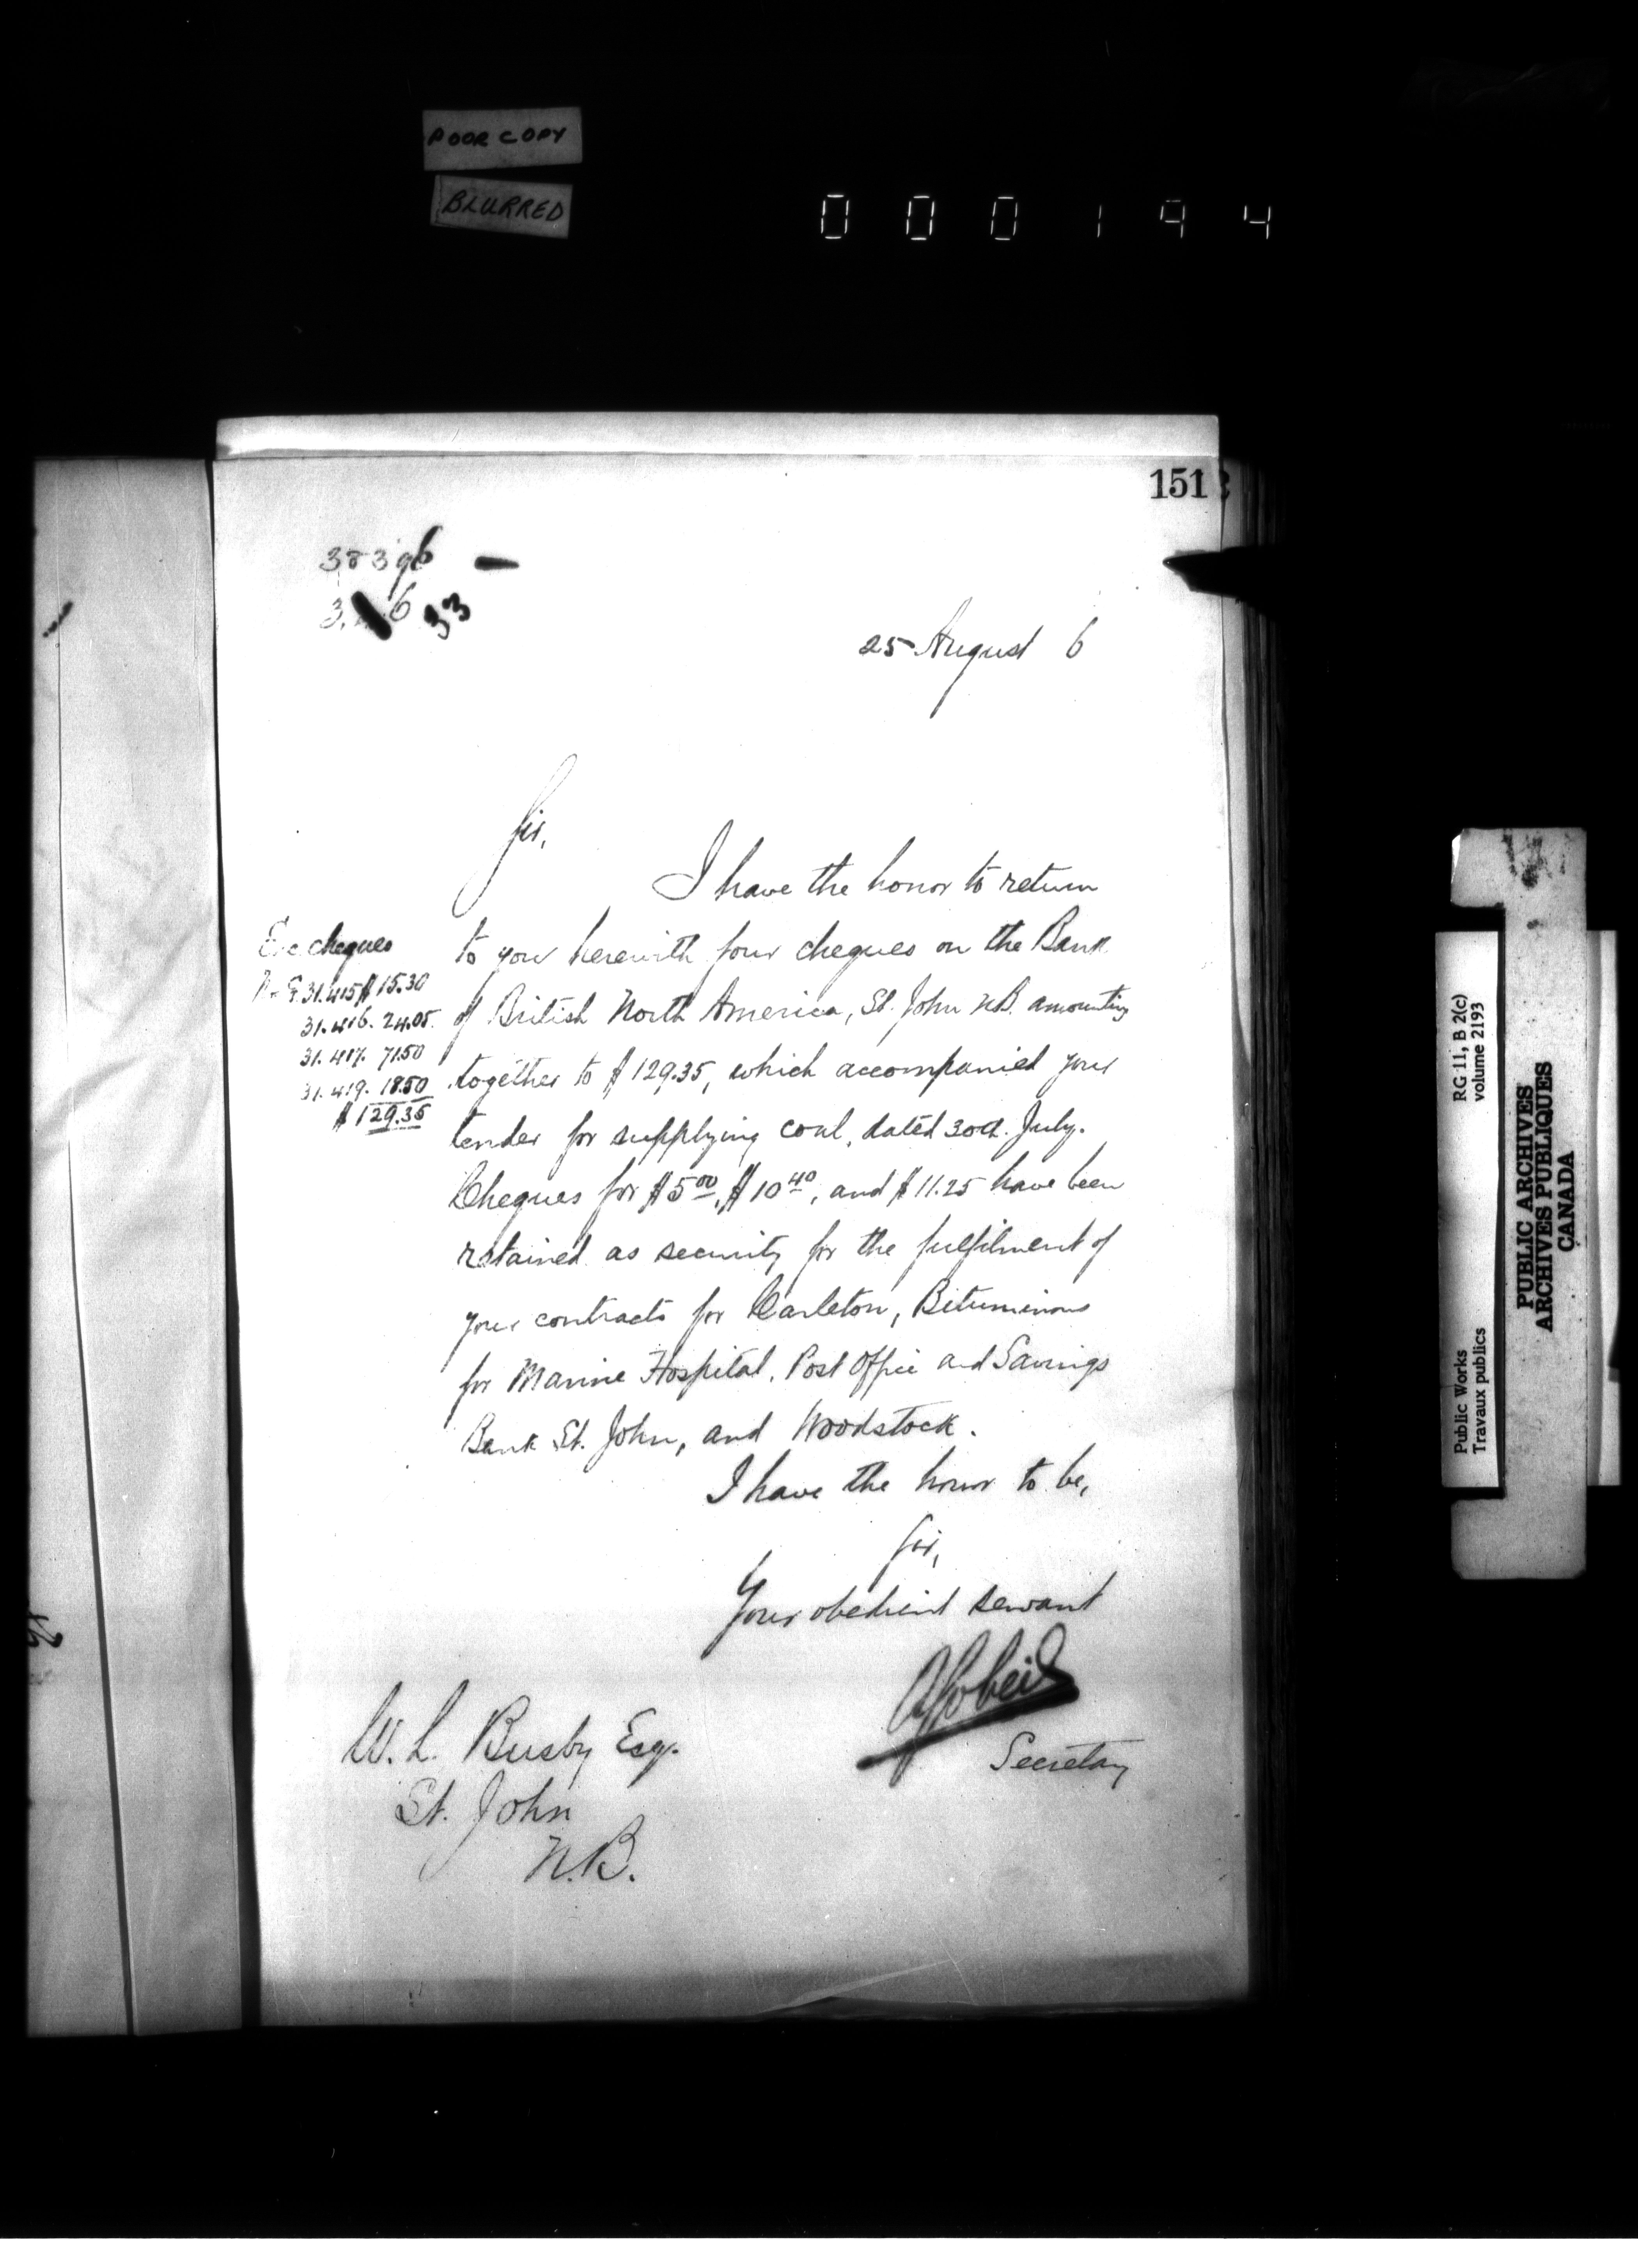 POOR COPY
BLURRED
000194
151
38396
33
25 August 6
Sir,
I have the honor to return
to you herewith four cheques on the Bank
of British North America, St. John N.B. amounting
together to $129.35, which accompanied your
tender for supplying coal, dated 30th. July.
Cheques for $5 00, $10 40, and $11.25 have been
retained as security for the fulfilment of
your contracts for Carleton, Bituminous
for Marine Hospital, Post Office and Savings
Bank St. John, and Woodstock.
I have the honor to be,
Sir,
Your obedient servant
Secretary
W. L. Busby Esq.
St. John
N.B.
cheques
31.415 $ 15.30
31.416. 24.05.
31.417. 71.50
31.419. 18.50
$129.35
Public Works
Travaux publics
RG 11, B 2(c)
volume 2193
PUBLIC ARCHIVES
ARCHIVES PUBLIQUES
CANADA